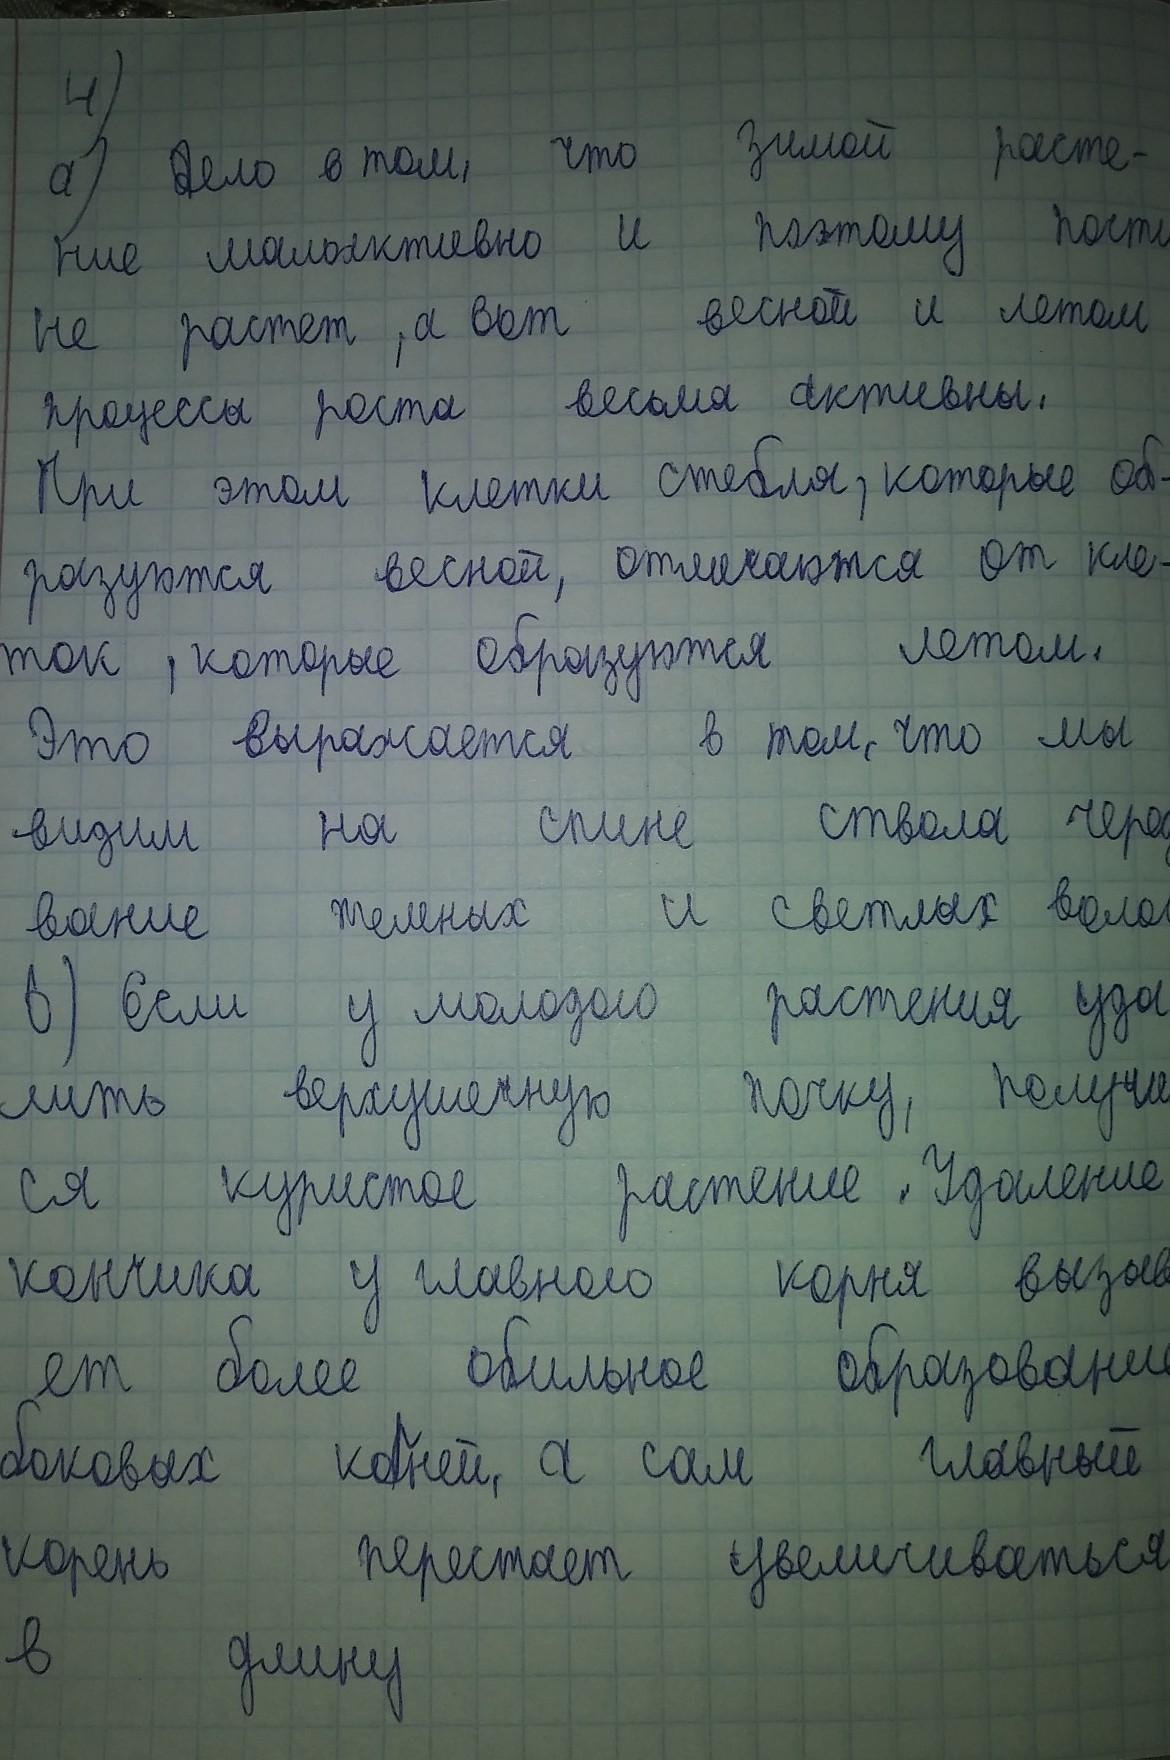 4)
а) Дело в том, что зимой расте-
ние малоактивно и поэтому почти
не растет, а вот весной и летом
процессы роста весьма активны.
При этом клетки стебля, которые об-
разуются весной, отличаются от кле-
ток, которые образуются летом.
Это выражается в том, что мы
видим на спине ствола черед
вание темных и светлых волок
в) Если у молодого растения уда
лить верхушечную почку, получи
ся куристое растение. Удаление
кончика у главного корня вызыв
ет более обильное образование
боковых корней, а сам главный
корень перестает увеличиваться
в длину